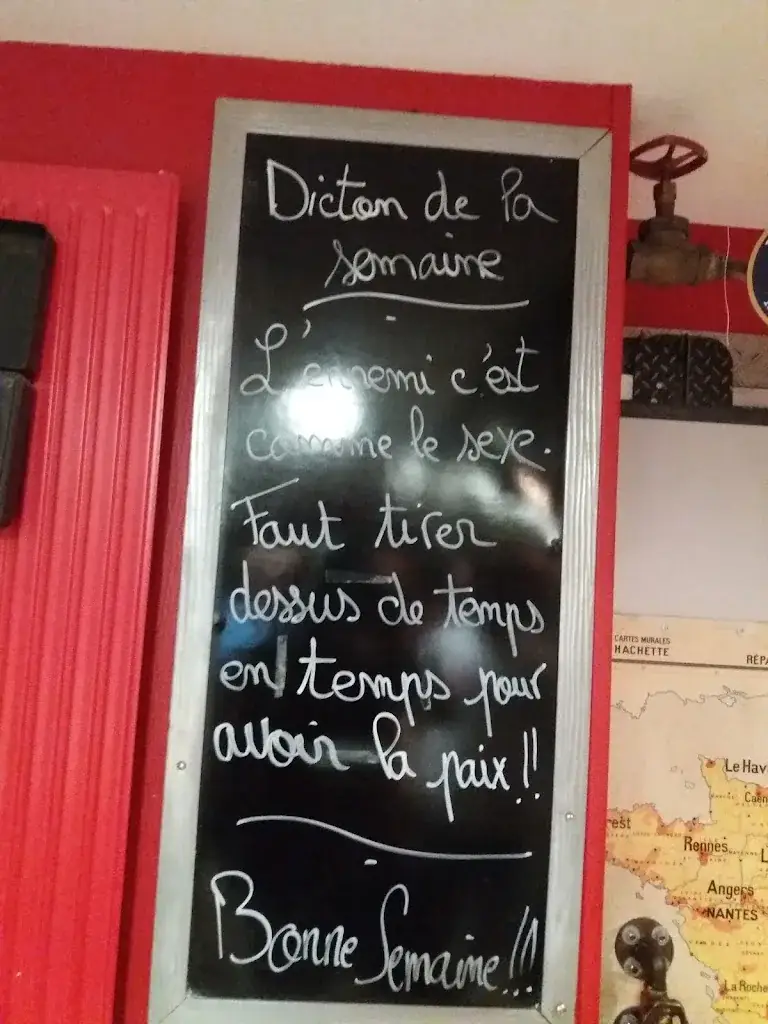 Dicton de la
semaine
L'ennemi c'est
comme le sexe.
Faut tirer
dessus de temps
en temps pour
avoir la paix !!
Bonne Semaine !!!
CARTES MURALES
HACHETTE
RÉPA
Le Hav
Caen
rest
Rennes
L
Angers
NANTES
La Roche